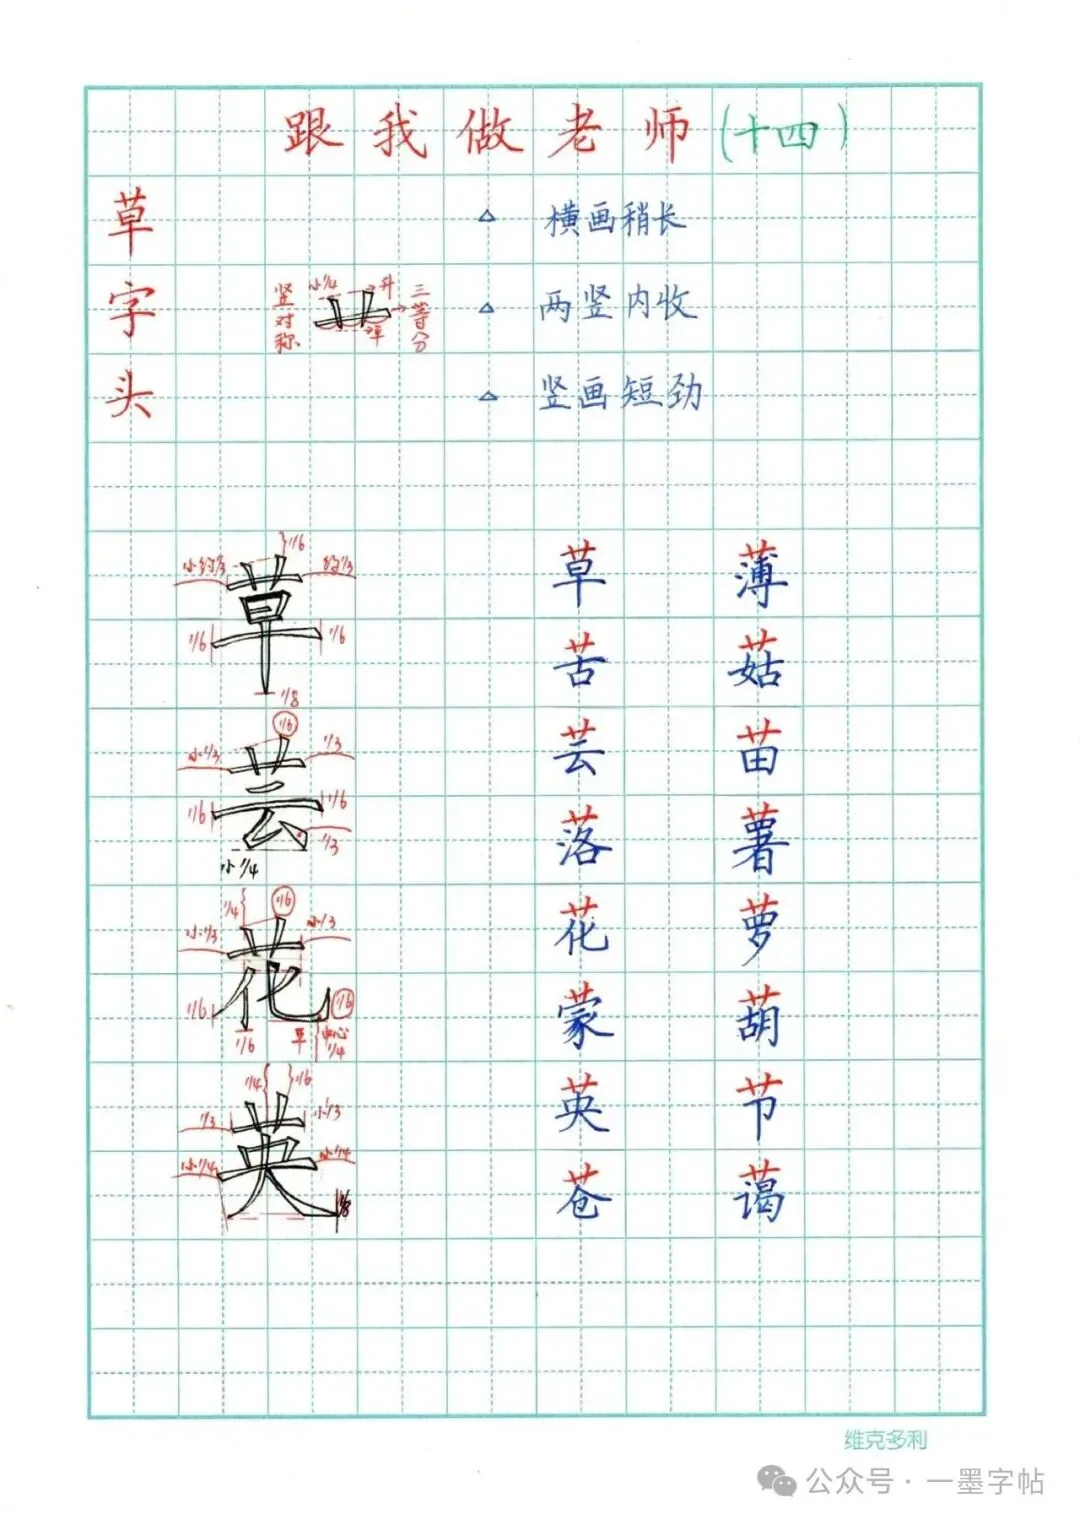 跟我做老师(十四)
草字头
△ 横画稍长
△ 两竖内收
△ 竖画短劲
竖对称
小1/4
升
三等分
草 薄
苦 菇
芸 苗
落 薯
花 萝
蒙 葫
英 节
苍 蔼
小约1/3 1/6 约1/3
草
1/6 1/6
1/8
小1/3 1/6 1/3
芸
1/6 1/6
1/3
小1/4
1/4 1/6 小1/3
小1/3
花
1/6 1/6
1/6 草 中心 1/4
1/4 1/6
1/3 小1/3
英
小1/4 小1/4
1/8
维克多利
公众号·一墨字帖